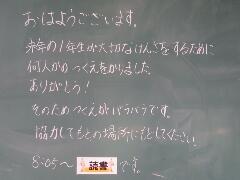 おはようございます。
来年の1年生が大きなけんさをするために
何人かのつくえをかりました。
ありがとう!
そのためつくえがバラバラです。
協力してもとの場所にもどしてください。
8:05〜 読書 です。